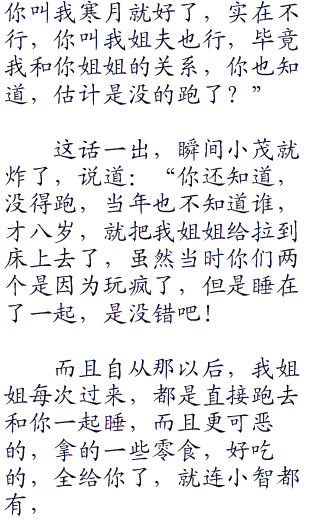 你叫我寒月就好了，实在不
行，你叫我姐夫也行，毕竟
我和你姐姐的关系，你也知
道，估计是没的跑了？”
这话一出，瞬间小茂就
炸了，说道：“你还知道，
没得跑，当年也不知道谁，
才八岁，就把我姐姐给拉到
床上去了，虽然当时你们两
个是因为玩疯了，但是睡在
了一起，是没错吧！
而且自从那以后，我姐
姐每次过来，都是直接跑去
和你一起睡，而且更可恶
的，拿的一些零食，好吃
的，全给你了，就连小智都
有，